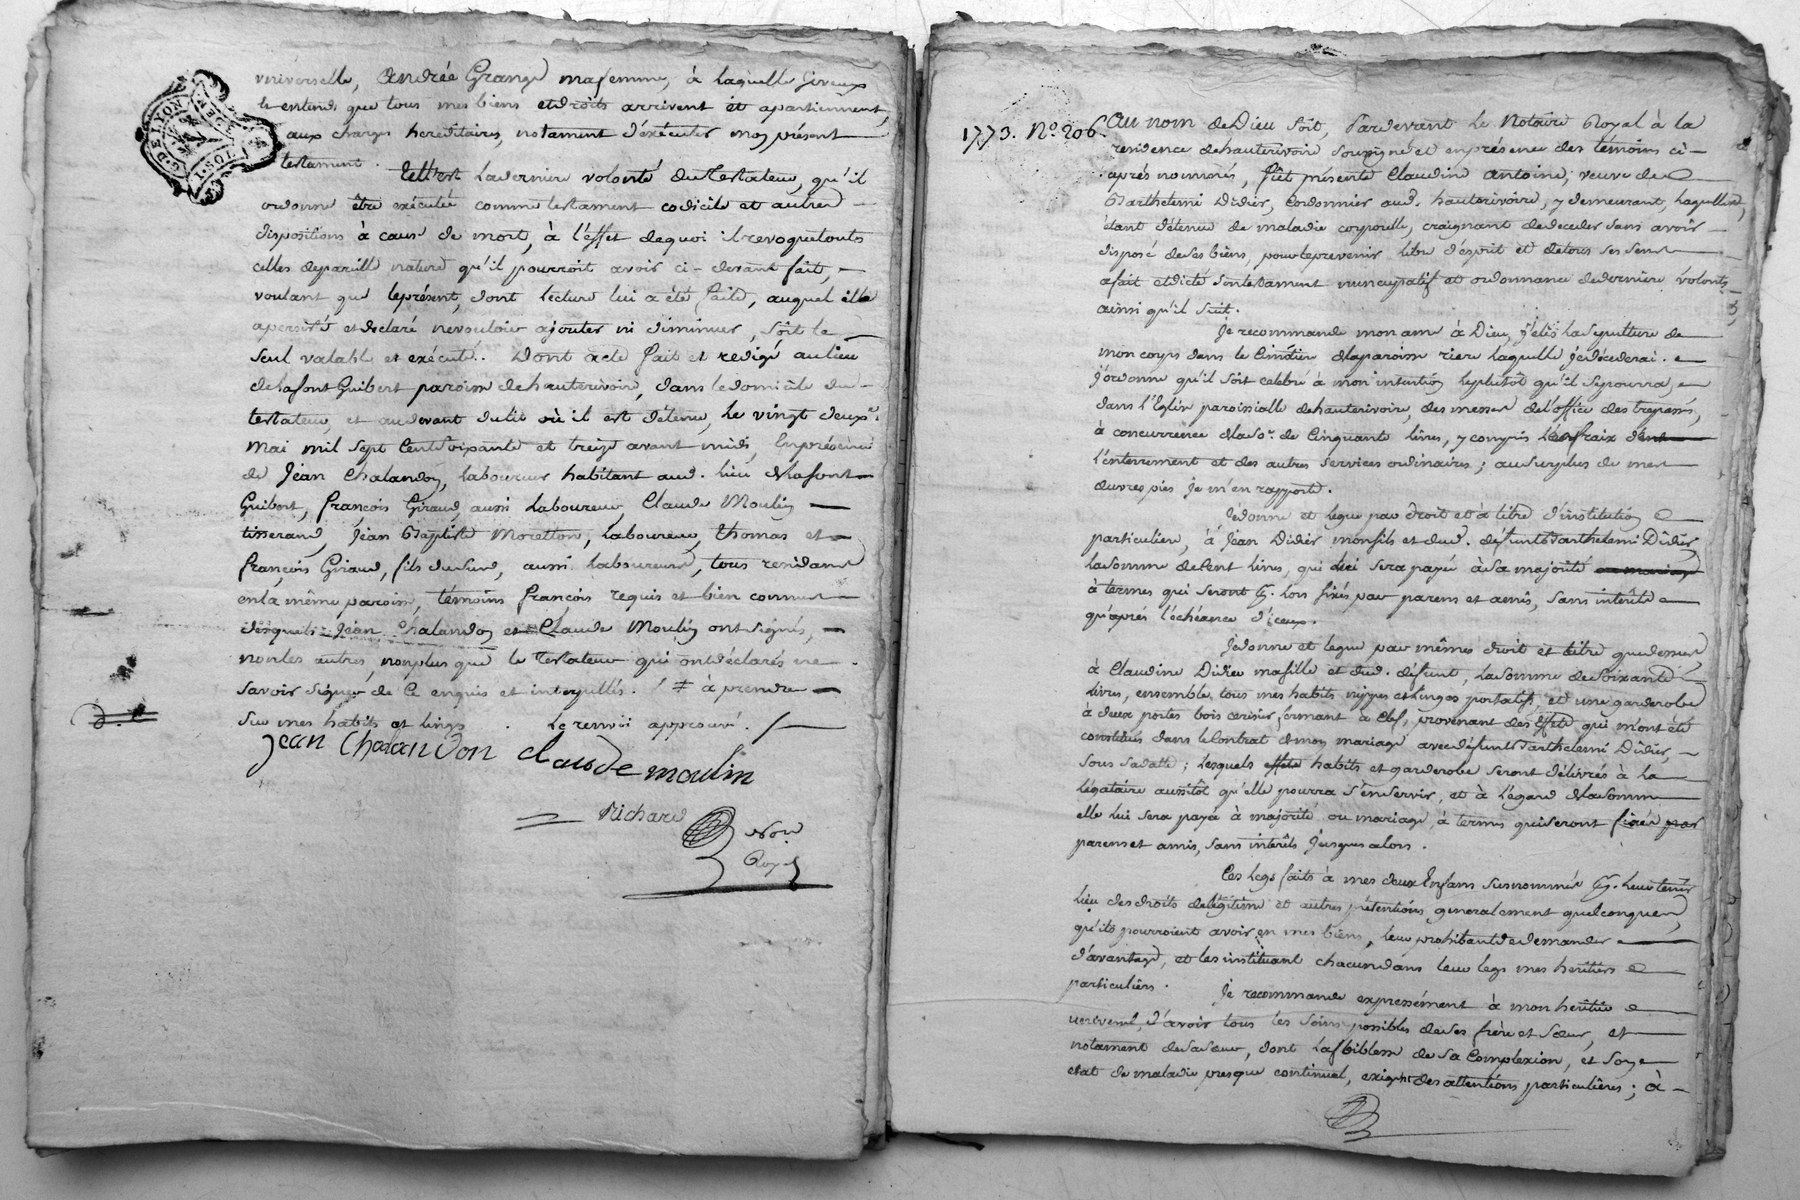 G. DE LYON
1 SOL
universelle, Andrée Grange ma femme, à laquelle je veux
et entends que tous mes biens et droits arrivent et apartiennent,
aux charges hereditaires, notament d'exécuter mon présent
testament.
Telle est la derniere volonté du Testateur, qu'il
ordonne être exécutée comme testament codicile et autres
dispositions à cause de mort, à l'effet de quoi il revoque toutes
celles de pareille nature qu'il pourroit avoir ci-devant fait,
voulant que le présent, dont lecture lui a été faite, auquel il a
persisté et declaré ne vouloir ajouter ni diminuer, soit le
seul valable et exécuté. Dont acte fait et redigé au lieu
de la font Guibert paroisse de hauterivoire, dans le domicile du
testateur, et au devant du lit où il est détenu, le vingt deuxe.
Mai mil sept Cent Soixante et treize avant midi, En présence
de Jean Chalandon, laboureur habitant aud. lieu de la font
Guibert, françois Giraud, aussi Laboureur, Claude Moulin
tisserand, Jean Baptiste Moretton, Laboureur, thomas et
françois Giraud, fils du susd, aussi Laboureurs, tous residans
en la même paroisse, temoins françois requis et bien connus
desquels Jean Chalandon et Claude Moulin ont signés,
non les autres, non plus que le Testateur qui ont déclarés ne
savoir signer de Ce enquis et interpellés. / ≠ à prendre
sur mes habits et linges. Le renvoi approuvé. /
Jean Chalandon Claude moulin
Richard
Nore
Royal
1773. No. 206.
Au nom de Dieu soit, Pardevant le Notaire Royal à la
residence de hauterivoire soussigné et en présence des temoins ci-
après nommés, fût présente Claudine Antoine, veuve de
Barthelemi Didier, Cordonnier aud. hauterivoire, y demeurant, laquelle,
étant détenue de maladie corporelle, craignant de deceder sans avoir
disposé de ses biens, pour le prevenir, libre d'esprit et de tous ses sens
a fait et dicté son testament nuncupatif et ordonnance de derniere volonté
ainsi qu'il suit.
Je recommande mon ame à Dieu, j'élis la sepulture de
mon corps dans le Cimétiere de la paroisse riere laquelle je decederai.
J'ordonne qu'il soit célebré à mon intention le plutôt qu'il se pourra,
dans l'Eglise paroissialle de hauterivoire, des messes de l'office des trepassés,
à concurrence de la se. de Cinquante livres, y compris les fraix de
l'enterrement et des autres services ordinaires; au surplus de mes
œuvres pies je m'en rapporte.
Je donne et legue par droit et à titre d'institution
particuliere, à Jean Didier mon fils et dud. defunt Barthelemi Didier,
la somme de Cent livres, qui lui sera payée à sa majorité
à termes qui seront pr. lors fixés par parens et amis, sans intérêts
qu'après l'échéance d'iceux.
Je donne et legue par mêmes droit et titre que dessus,
à Claudine Didier ma fille et dud. defunt, la somme de Soixante
livres, ensemble tous mes habits nippes et linges portatifs, et une garderobe
à deux portes bois cerisier fermant à Clef, provenant des effets qui m'ont été
constitués dans le Contrat de mon mariage avec défunt Barthelemi Didier,
sous sa datte; lesquels habits et garderobe seront délivrés à la
légataire aussitôt qu'elle pourra s'en servir, et à l'égard de la somme
elle lui sera payée à majorité ou mariage, à termes qui seront fixés par
parens et amis, sans intérêts jusques alors.
Ces legs faits à mes deux Enfans susnommés pr. leur tenir
lieu des droits de légitime et autres prétentions generalement quelconques,
qu'ils pourroient avoir en mes biens, leur prohibant de demander
d'avantage, et les instituant chacun dans leur legs mes heritiers
particuliers.
Je recommande expressément à mon heritier
universel, d'avoir tous les soins possibles de ses frère et sœur, et
notament de sa sœur, dont la foiblesse de sa Complexion, et son
etat de maladie presque continuel, exigent des attentions particulières; à